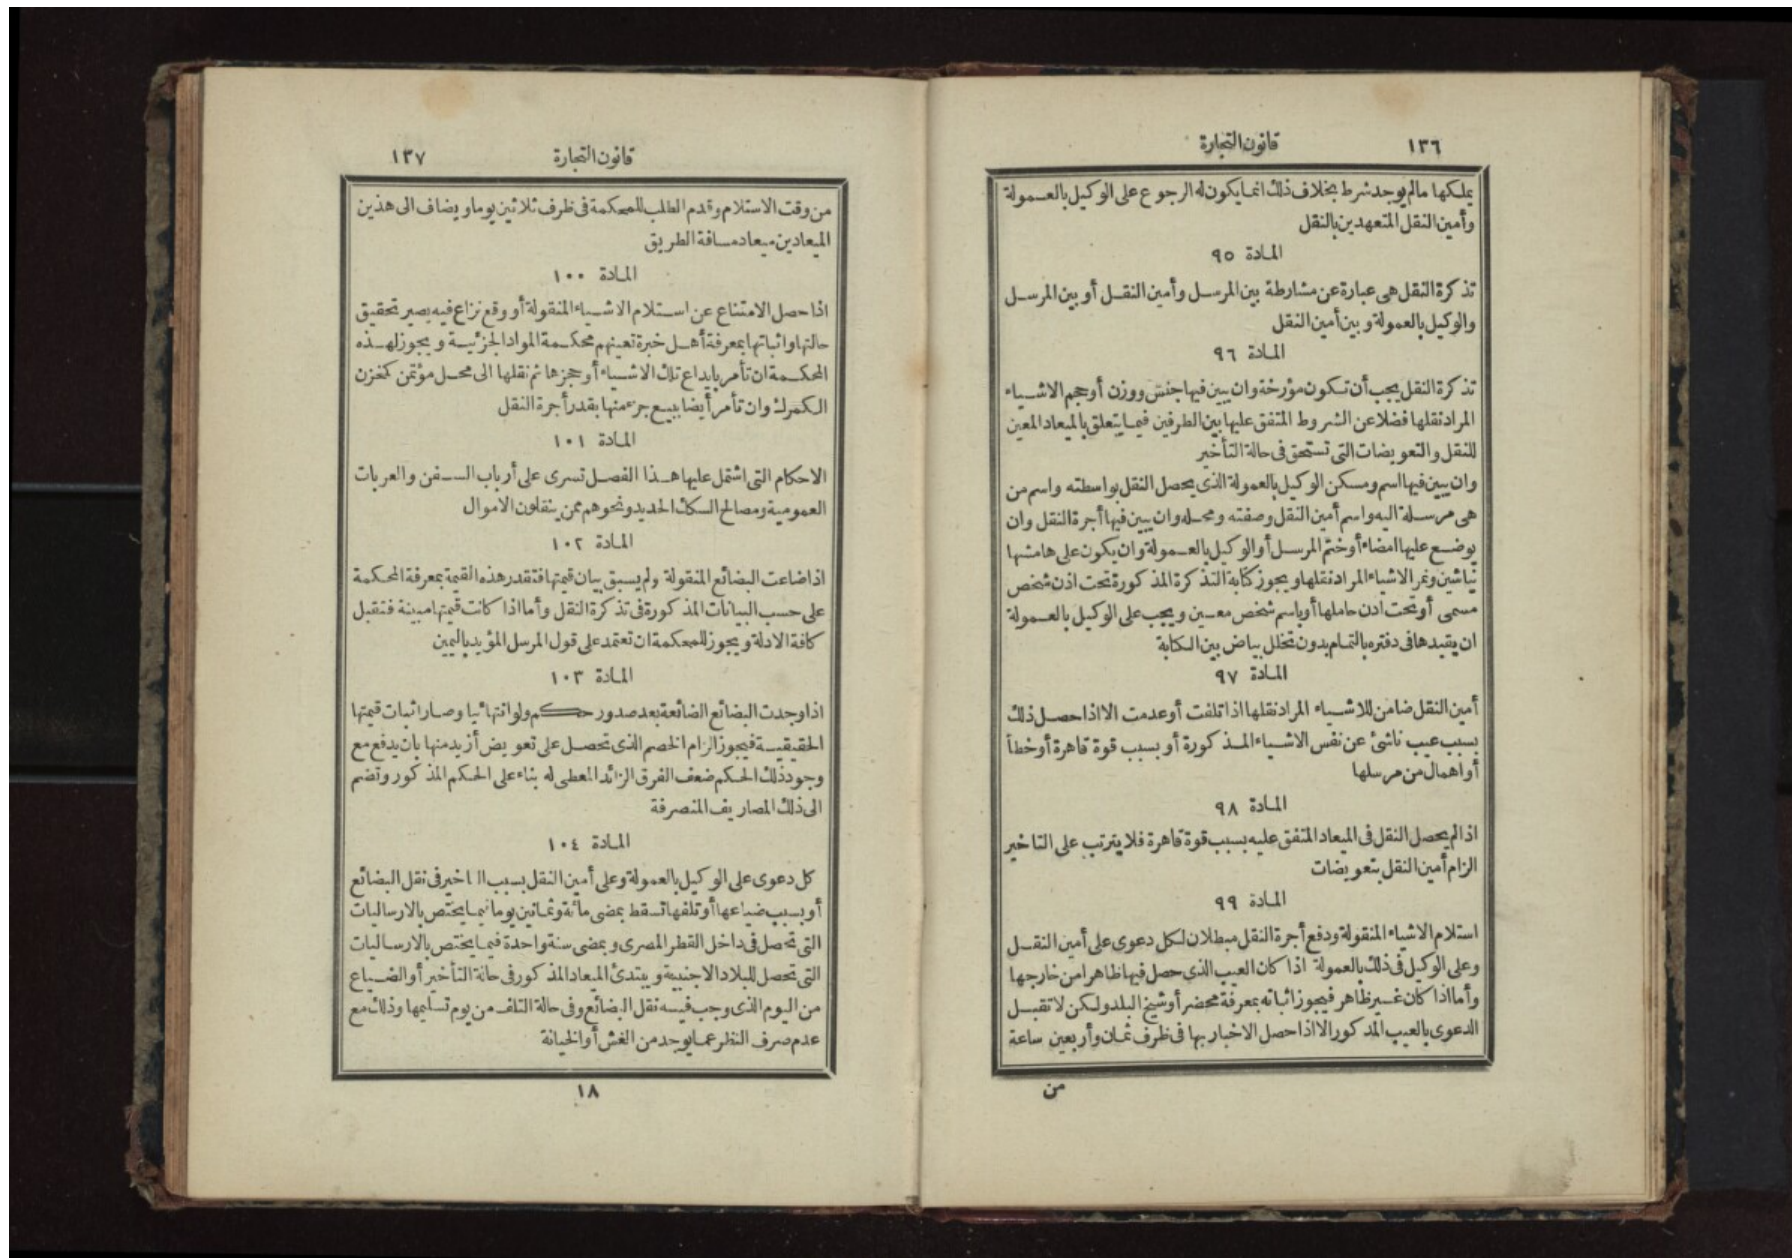 ١٣٦
قانون التجارة
يملكها مالم يوجد شرط بخلاف ذلك انما يكون له الرجوع على الوكيل بالعمولة
وأمين النقل المتعهدين بالنقل
المادة ٩٥
تذكرة النقل هى عبارة عن مشارطة بين المرسل وأمين النقل أو بين المرسل
والوكيل بالعمولة وبين أمين النقل
المادة ٩٦
تذكرة النقل يجب أن تكون مؤرخة وان يبين فيها جنس ووزن أو حجم الاشياء
المراد نقلها فضلا عن الشروط المتفق عليها بين الطرفين فيما يتعلق بالميعاد المعين
للنقل والتعويضات التى تستحق فى حالة التأخير
وان يبين فيها اسم ومسكن الوكيل بالعمولة الذى يحصل النقل بواسطته واسم من
هى مرسلة اليه واسم أمين النقل وصفته ومحله وان يبين فيها أجرة النقل وان
يوضع عليها امضاء أو ختم المرسل أو الوكيل بالعمولة وان يكون على هامشها
نياشين ونمر الاشياء المراد نقلها ويجوز كتابة التذكرة المذكورة تحت اذن شخص
مسمى أو تحت اذن حاملها أو باسم شخص معين ويجب على الوكيل بالعمولة
ان يقيدها فى دفتره بالتمام بدون تخلل بياض بين الكتابة
المادة ٩٧
أمين النقل ضامن للاشياء المراد نقلها اذا تلفت أو عدمت الا اذا حصل ذلك
بسبب عيب ناشئ عن نفس الاشياء المذكورة أو بسبب قوة قاهرة أو خطأ
أو اهمال من مرسلها
المادة ٩٨
اذا لم يحصل النقل فى الميعاد المتفق عليه بسبب قوة قاهرة فلا يترتب على التاخير
الزام أمين النقل بتعويضات
المادة ٩٩
استلام الاشياء المنقولة ودفع أجرة النقل مبطلان لكل دعوى على أمين النقل
وعلى الوكيل فى ذلك بالعمولة اذا كان العيب الذى حصل فيها ظاهرا من خارجها
وأما اذا كان غير ظاهر فيجوز اثباته بمعرفة محضر أو شيخ البلد ولكن لا تقبل
الدعوى بالعيب المذكور الا اذا حصل الاخبار بها فى ظرف ثمان وأربعين ساعة
من
قانون التجارة
١٣٧
من وقت الاستلام وقدم الطلب للمحكمة فى ظرف ثلاثين يوما ويضاف الى هذين
الميعادين ميعاد مسافة الطريق
المادة ١٠٠
اذا حصل الامتناع عن استلام الاشياء المنقولة أو وقع نزاع فيه يصير تحقيق
حالتها واثباتها بمعرفة أهل خبرة تعينهم محكمة المواد الجزئية ويجوز لهذه
المحكمة ان تأمر بايداع تلك الاشياء أو حجزها ثم نقلها الى محل مؤتمن كمخزن
الكمرك وان تأمر أيضا ببيع جزء منها بقدر أجرة النقل
المادة ١٠١
الاحكام التى اشتمل عليها هذا الفصل تسرى على أرباب السفن والعربات
العمومية ومصالح السكك الحديد ونحوهم ممن ينقلون الاموال
المادة ١٠٢
اذا ضاعت البضائع المنقولة ولم يسبق بيان قيمتها فتقدر هذه القيمة بمعرفة المحكمة
على حسب البيانات المذكورة فى تذكرة النقل وأما اذا كانت قيمتها مبينة فتقبل
كافة الادلة ويجوز للمحكمة ان تعتمد على قول المرسل المؤيد باليمين
المادة ١٠٣
اذا وجدت البضائع الضائعة بعد صدور حكم ولو انتهائيا وصار اثبات قيمتها
الحقيقية فيجوز الزام الخصم الذى تحصل على تعويض أزيد منها بان يدفع مع
وجود ذلك الحكم ضعف الفرق الزائد المعطى له بناء على الحكم المذكور وتضم
الى ذلك المصاريف المنصرفة
المادة ١٠٤
كل دعوى على الوكيل بالعمولة وعلى أمين النقل بسبب التاخير فى نقل البضائع
أو بسبب ضياعها أو تلفها تسقط بمضى مائة وثمانين يوما فيما يختص بالارساليات
التى تحصل فى داخل القطر المصرى وبمضى سنة واحدة فيما يختص بالارساليات
التى تحصل للبلاد الاجنبية ويبتدئ الميعاد المذكور فى حالة التأخير أو الضياع
من اليوم الذى وجب فيه نقل البضائع وفى حالة التلف من يوم تسليمها وذلك مع
عدم صرف النظر عما يوجد من الغش أو الخيانة
١٨